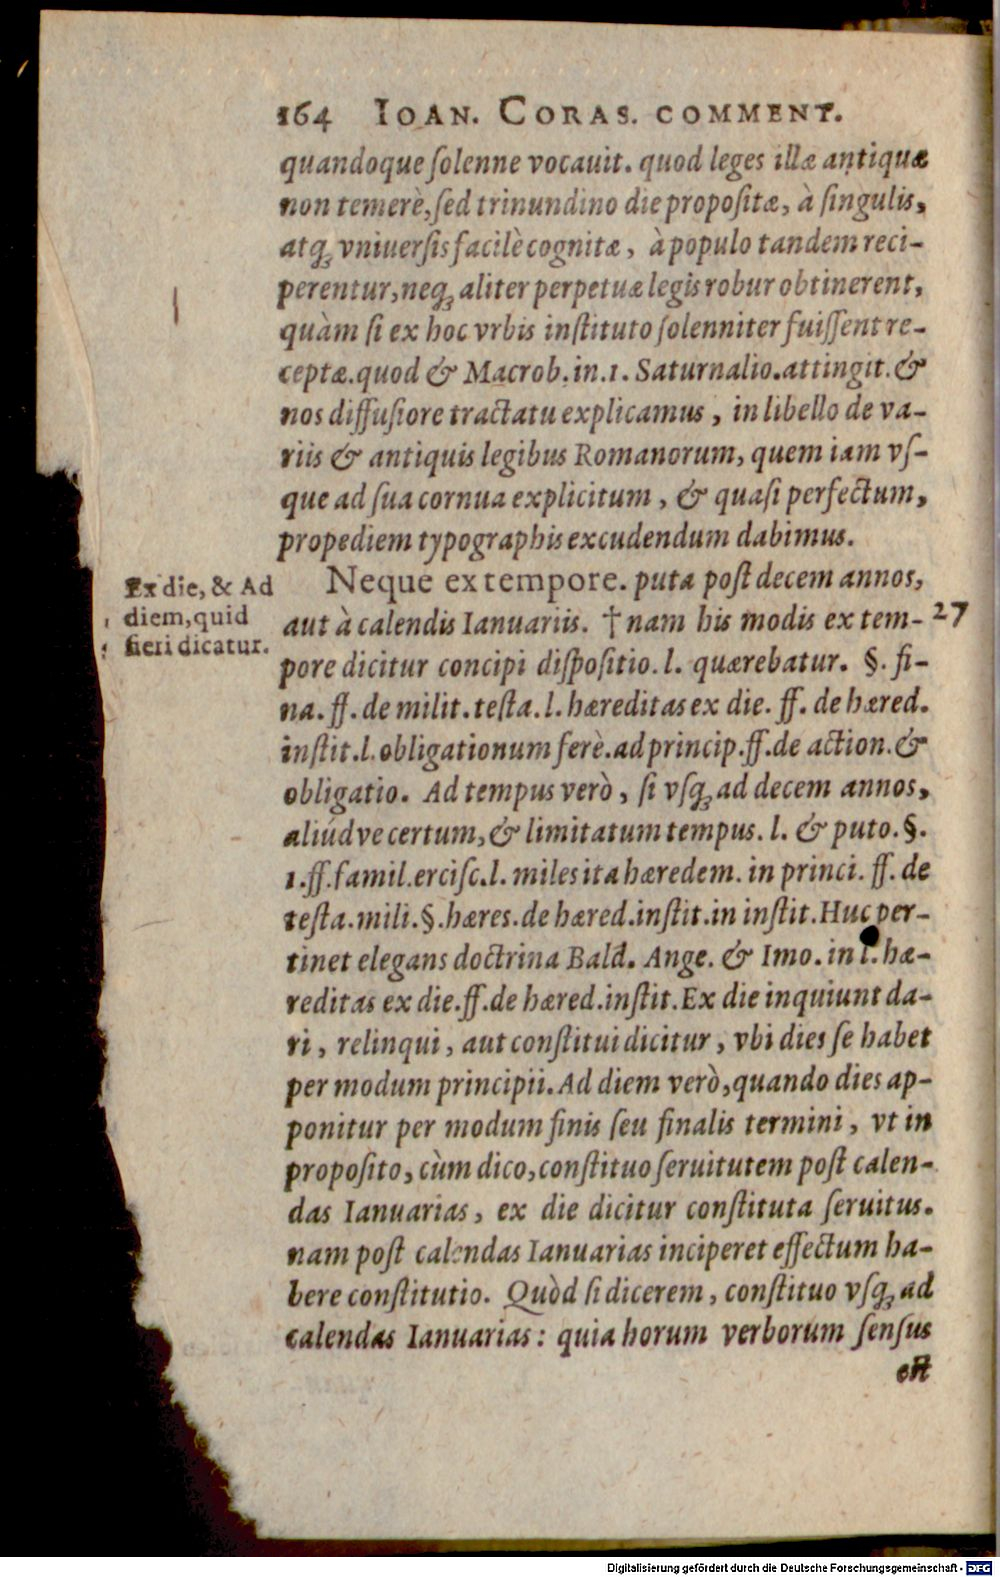 164 IOAN. CORAS. COMMENT.
quandoque ſolenne vocauit. quod leges illæ antiquæ
non temerè, ſed trinundino die propoſitæ, à ſingulis,
atq; vniuerſis facilè cognitæ, à populo tandem reci-
perentur, neq; aliter perpetuæ legis robur obtinerent,
quàm ſi ex hoc vrbis inſtituto ſolenniter fuiſſent re-
ceptæ. quod & Macrob. in. 1. Saturnalio. attingit. &
nos diffuſiore tractatu explicamus, in libello de va-
riis & antiquis legibus Romanorum, quem iam vſ-
que ad ſua cornua explicitum, & quaſi perfectum,
propediem typographis excudendum dabimus.
Neque ex tempore. puta poſt decem annos,
Ex die, & Ad
diem, quid
fieri dicatur.
aut à calendis Ianuariis. † nam his modis ex tem- 27
pore dicitur concipi diſpoſitio. l. quærebatur. §. fi-
na. ff. de milit. teſta. l. hæreditas ex die. ff. de hæred.
inſtit. l. obligationum ferè. ad princip. ff. de action. &
obligatio. Ad tempus verò, ſi vſq; ad decem annos,
aliúdve certum, & limitatum tempus. l. & puto. §.
1. ff. famil. erciſc. l. miles ita hæredem. in princi. ff. de
teſta. mili. §. hæres. de hæred. inſtit. in inſtit. Huc per-
tinet elegans doctrina Bald. Ange. & Imo. in l. hæ-
reditas ex die. ff. de hæred. inſtit. Ex die inquiunt da-
ri, relinqui, aut conſtitui dicitur, vbi dies ſe habet
per modum principii. Ad diem verò, quando dies ap-
ponitur per modum finis ſeu finalis termini, vt in
propoſito, cùm dico, conſtituo ſeruitutem poſt calen-
das Ianuarias, ex die dicitur conſtituta ſeruitus.
nam poſt calendas Ianuarias inciperet effectum ha-
bere conſtitutio. Quòd ſi dicerem, conſtituo vſq; ad
calendas Ianuarias: quia horum verborum ſenſus
eſt
Digitalisierung gefördert durch die Deutsche Forschungsgemeinschaft - DFG